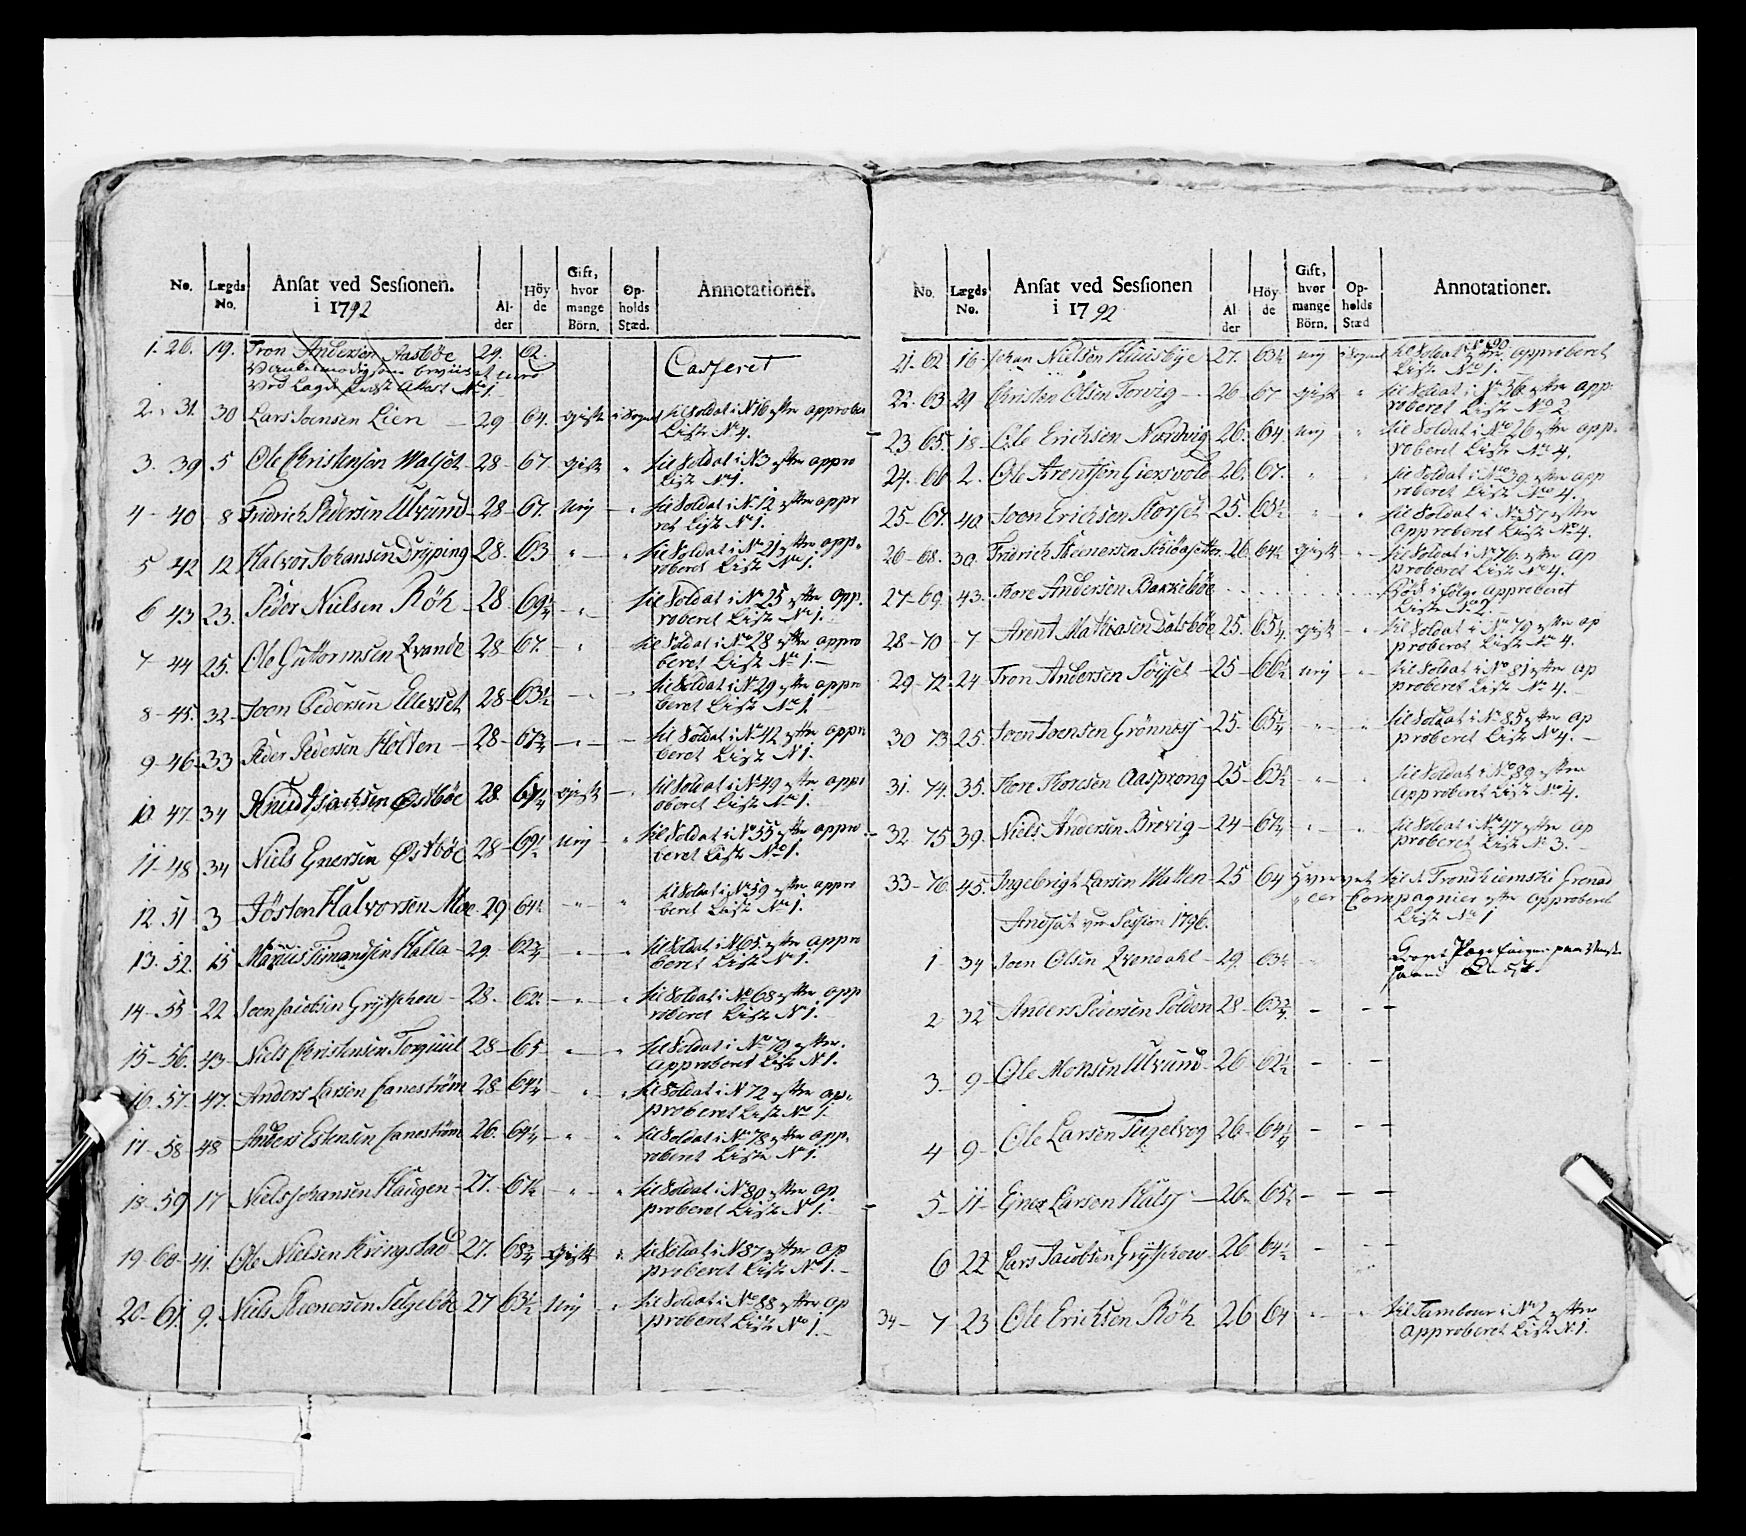 No. Lægds No. Ansat ved Sessionen. i 1792 Al- der Höy de Gift, hvor mange Börn. Op- holds Stæd. Annotationer.
1. 26. 19. Tron Andersen Aasböe 29. 62. Casseret
2. 31. 30 Lars Joensen Lien 29 64. gift i Sognet til Soldat i N 16 efter approberet
Liste No 4.
3. 39 5 Ole Christensen Walset 28 67. gift " til Soldat i N 3 efter appro
List No 1.
4 40 8 Fridrich Pedersen Ulvund 28 67. Ung " til Soldat i N. 12 efter appr
ret List N 1.
5 42 12 Halvor Johansen Dryping 28. 63 " " til Soldat i No 21 efter app-
roberet List No 1.
6 43 23. Peder Nielsen Röh 28 69½ " til Soldat i No 25 efter app.
roberet List No 1.
7 44 25. Ole Guttormsen Qvande 28 67. " til Soldat i No 28 efter appro
beret List No 1.
8 45. 32 Joen Pedersen Ellevset 28 63½ " til Soldat i N 29 efter appro
beret List No 1.
9 46 33 Peder Pedersen Holten 28 67¾ " til Soldat i No 42 efter appro
beret List N 1.
10. 47. 34 Knud Isachsen Östböe 28. gift " til Soldat i No 49 efter appr
oberet List No 1.
11 48 34 Niels Enersen Östböe 28 69½ Ung " til Soldat i No 55 efter appro
beret List No 1.
12 51 3 Jösten Halvorsen Moe 29 64½ " " til Soldat i No 59 efter appro
beret List No 1.
13. 52. 15 Marius Timandsen Halla 29. 62¾ " " til Soldat i N 65. efter appro
beret List No 1.
14 55 22 Joen Jacobsen Grytschou 28. 62. " " til Soldat i No 68 efter app
roberet List N 1.
15 56. 43 Niels Christensen Torquiil 28 65 " " til Soldat i No 70 efter
approberet List N 1.
16. 57. 47. Anders Larsen Caneström 28 64¼ " " til Soldat i N 72 efter ap-
proberet List No 1.
17 58 48 Anders Estensen Caneström 26. 64¼ " " til Soldat i No 78 efter app-
roberet List No 1.
18 59 17 Niels Johansen Haugen 27. " " til Soldat i No 80 efter ap
proberet List N 1.
19 60 41. Ole Nielsen Kringstad 27. 68¾ gift " til Soldat i N 87 efter ap
proberet List No 1.
20 61. 9. Niels Steenersen Selgeböe 27 63½ Ung " til Soldat i No 88 efter ap
proberet List No 1.
No. Lægds No. Ansat ved Sessionen i 1792 Al der Höy- de Gift, hvor mange Börn. Op- holds Stæd Annotationer.
21 62 16 Johan Nielsen Huusbye 27. 63½ ung i Sognet til Soldat i No 90 efter approberet
List No 1.
22 63 29 Christen Olsen Torvig 26 67 gift " til Soldat i No 36 efter app-
roberet List No 2
23 65. 18 Ole Erichsen Nordvig 26. 64 ung " til Soldat i No 26 efter app-
roberet List No 4.
24. 66 2. Ole Arentsen Giersvold 26. 67. " " til Soldat i No 39 efter app
roberet List No 4.
25 67. 40 Joen Erichsen Storset 25. 65½ " " til Soldat i No 57 efter
approberet List No 4.
26 68. 30. Fridrich Steenersen 26 64½ gift " til Soldat i No 76. efter ap
proberet List No 4.
27 69. 43. Tore Andersen Bakkeböe Död i fölge approberet
List No 2
28 70 7 Arent Mathiasen Dalsböe 25. 65¼ gift " til Soldat i No 79 efter ap
proberet List No 4.
29 72. 24 Tron Andersen Söyset 25 66½ ung " til Soldat i No 81 efter ap
proberet List No 4.
30 73 25. Joen Joensen Grönnes 25 65¼ " " til Soldat i No 85 efter ap
proberet List No 4.
31. 74. 35. Tore Toresen Aasprong 25 63½ " " til Soldat i No 89 efter
approberet List No 4.
32. 75 39. Niels Andersen Brevig 24 67¼ " " til Soldat i No 47 efter ap
proberet List N 3.
33 76. 45. Ingebrigt Larsen Watten 25 64 hvervet til 1. Trondhiemske Grenad
eer Compagnier efter approberet
List No 1
Andsat ved Session 1796.
1 34 Joen Olsen Qvendahl 29. 63½ "
2 32 Anders Pedersen Solden 28 63¾ — — —
3 9 Ole Monsen Ulvund 26 62½ — — —
4 9 Ole Larsen Tugelvog 26 64¼ — — —
5 11 Ener Larsen Huls 26 65½ — — —
6 22 Lars Jacobsen Grytschou 26 64½ — — —
34 7 23 Ole Erichsen Röh 26 64 " " til Tambour i No 2 efter
approberet List N 1.